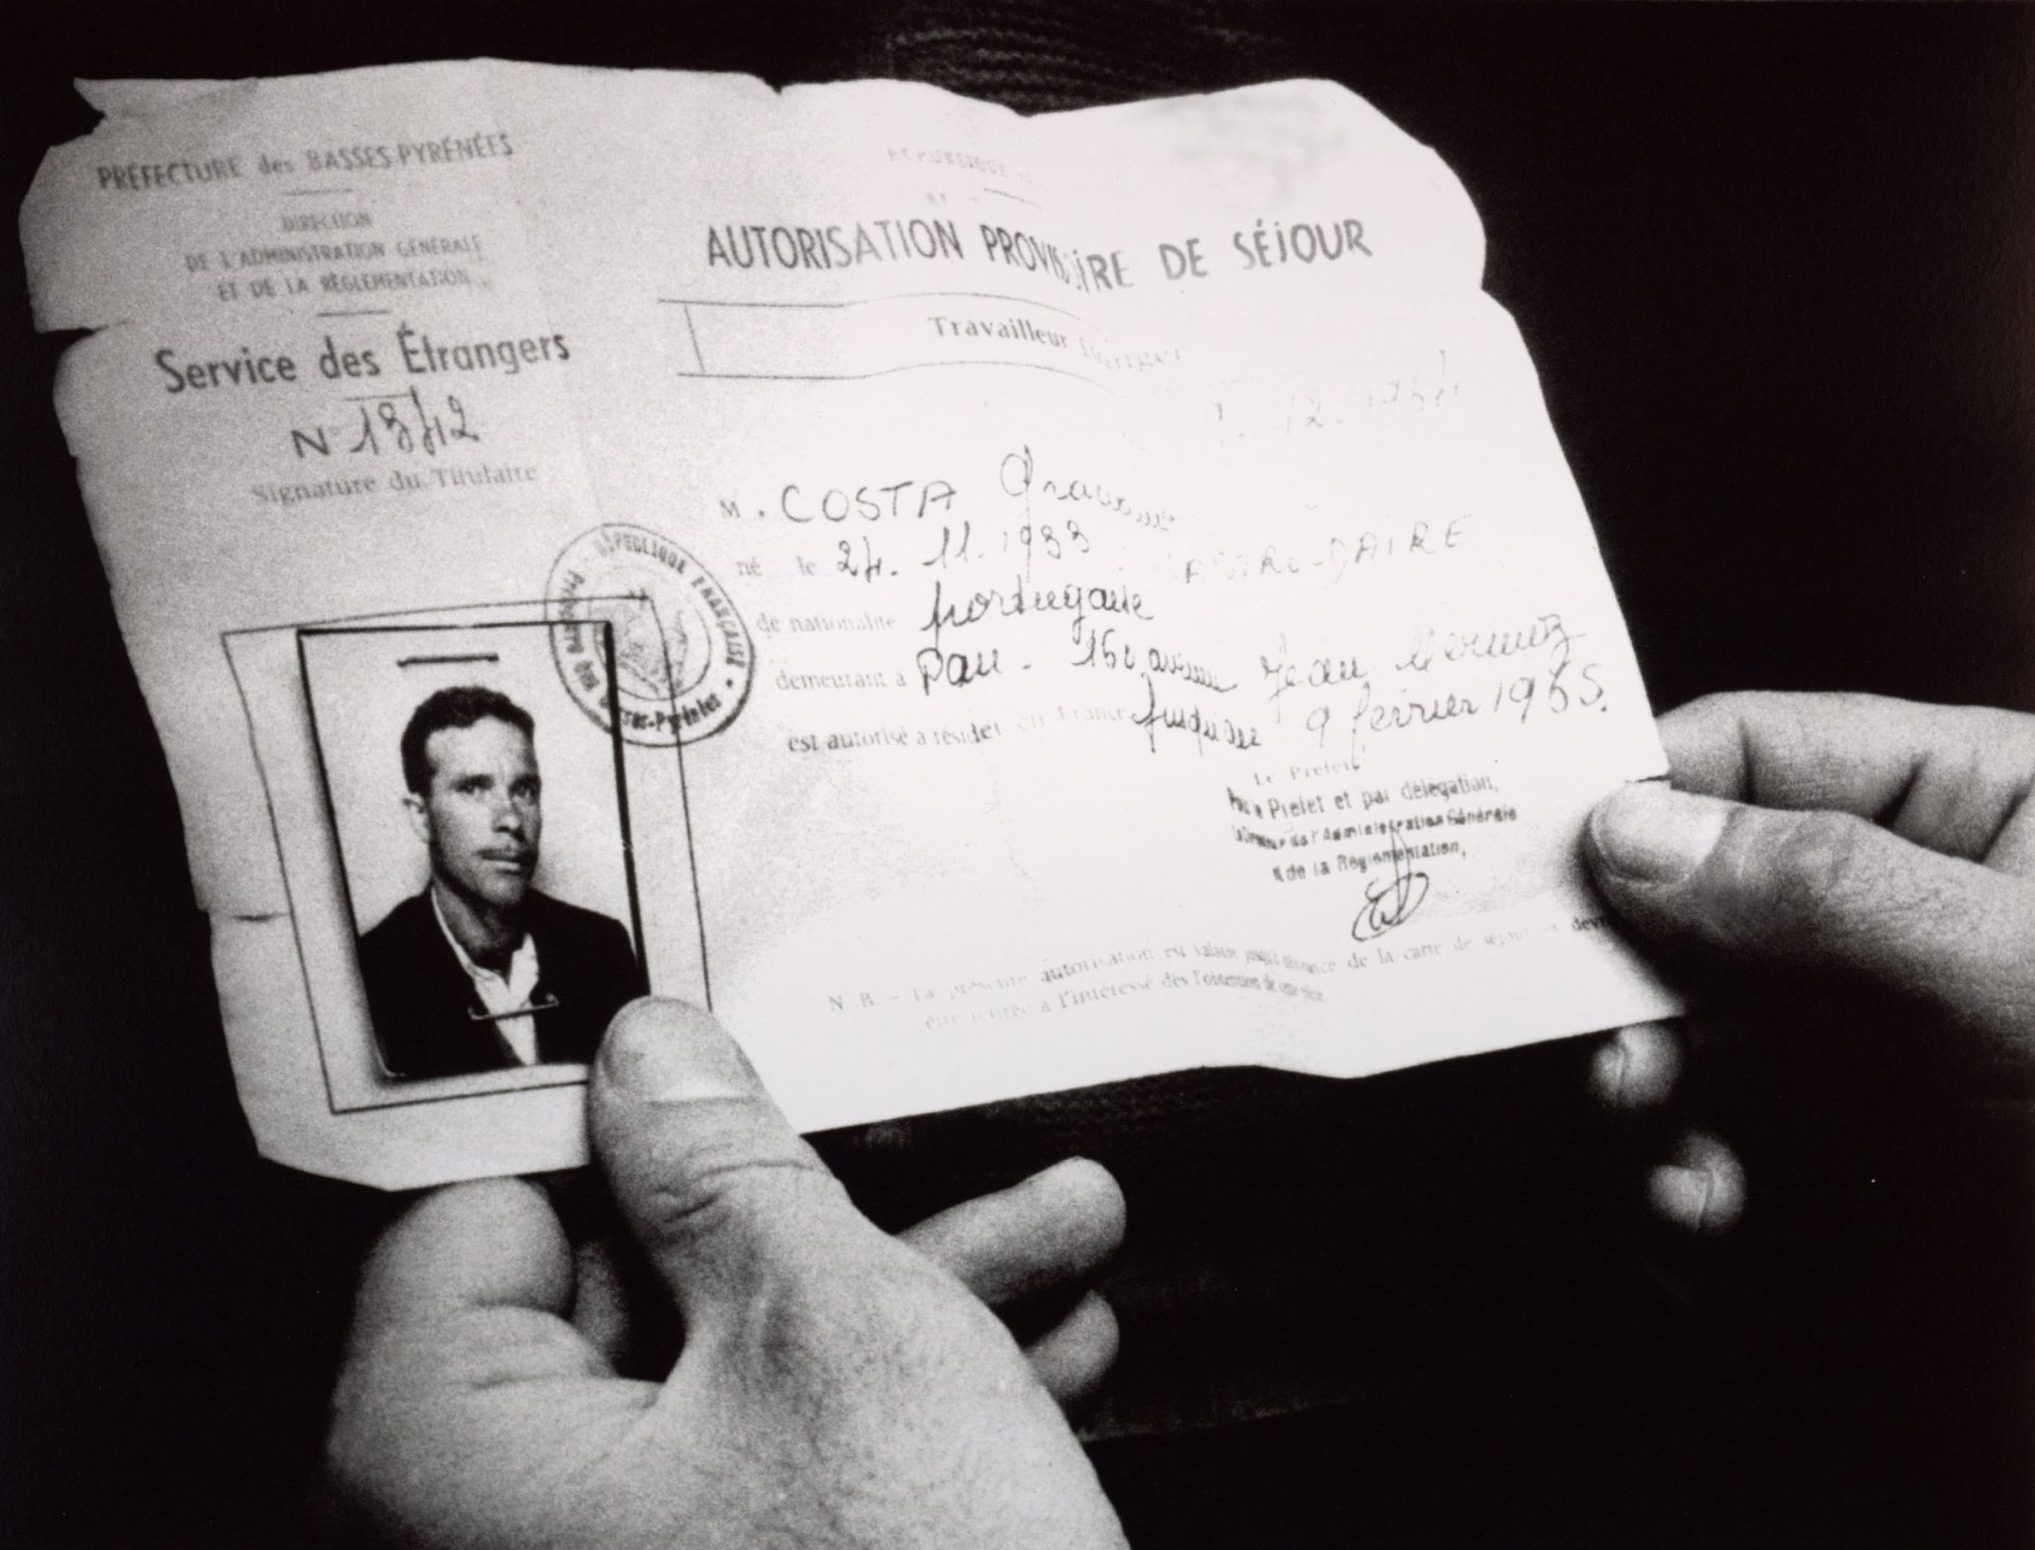 PRÉFECTURE des BASSES-PYRÉNÉES
DIRECTION
DE L'ADMINISTRATION GÉNÉRALE
ET DE LA RÉGLEMENTATION
Service des Étrangers
N° 13412
Signature du Titulaire
RÉPUBLIQUE
AUTORISATION PROVISOIRE DE SÉJOUR
Travailleur Étranger
12. 1964
M. COSTA
né le 24. 11. 1933 CASTRO-DAIRE
de nationalité portugaise
demeurant à Pau - avenue Jean Mermoz
est autorisé à résider en France jusqu'au 9 février 1965.
Le Préfet
Pour le Préfet et par délégation,
de l'Administration Générale
& de la Réglementation,
RÉPUBLIQUE FRANÇAISE
Basses-Pyrénées
N. B. - La présente autorisation est valable jusqu'à délivrance de la carte de séjour et devra
être rendue à l'intéressé dès l'obtention de